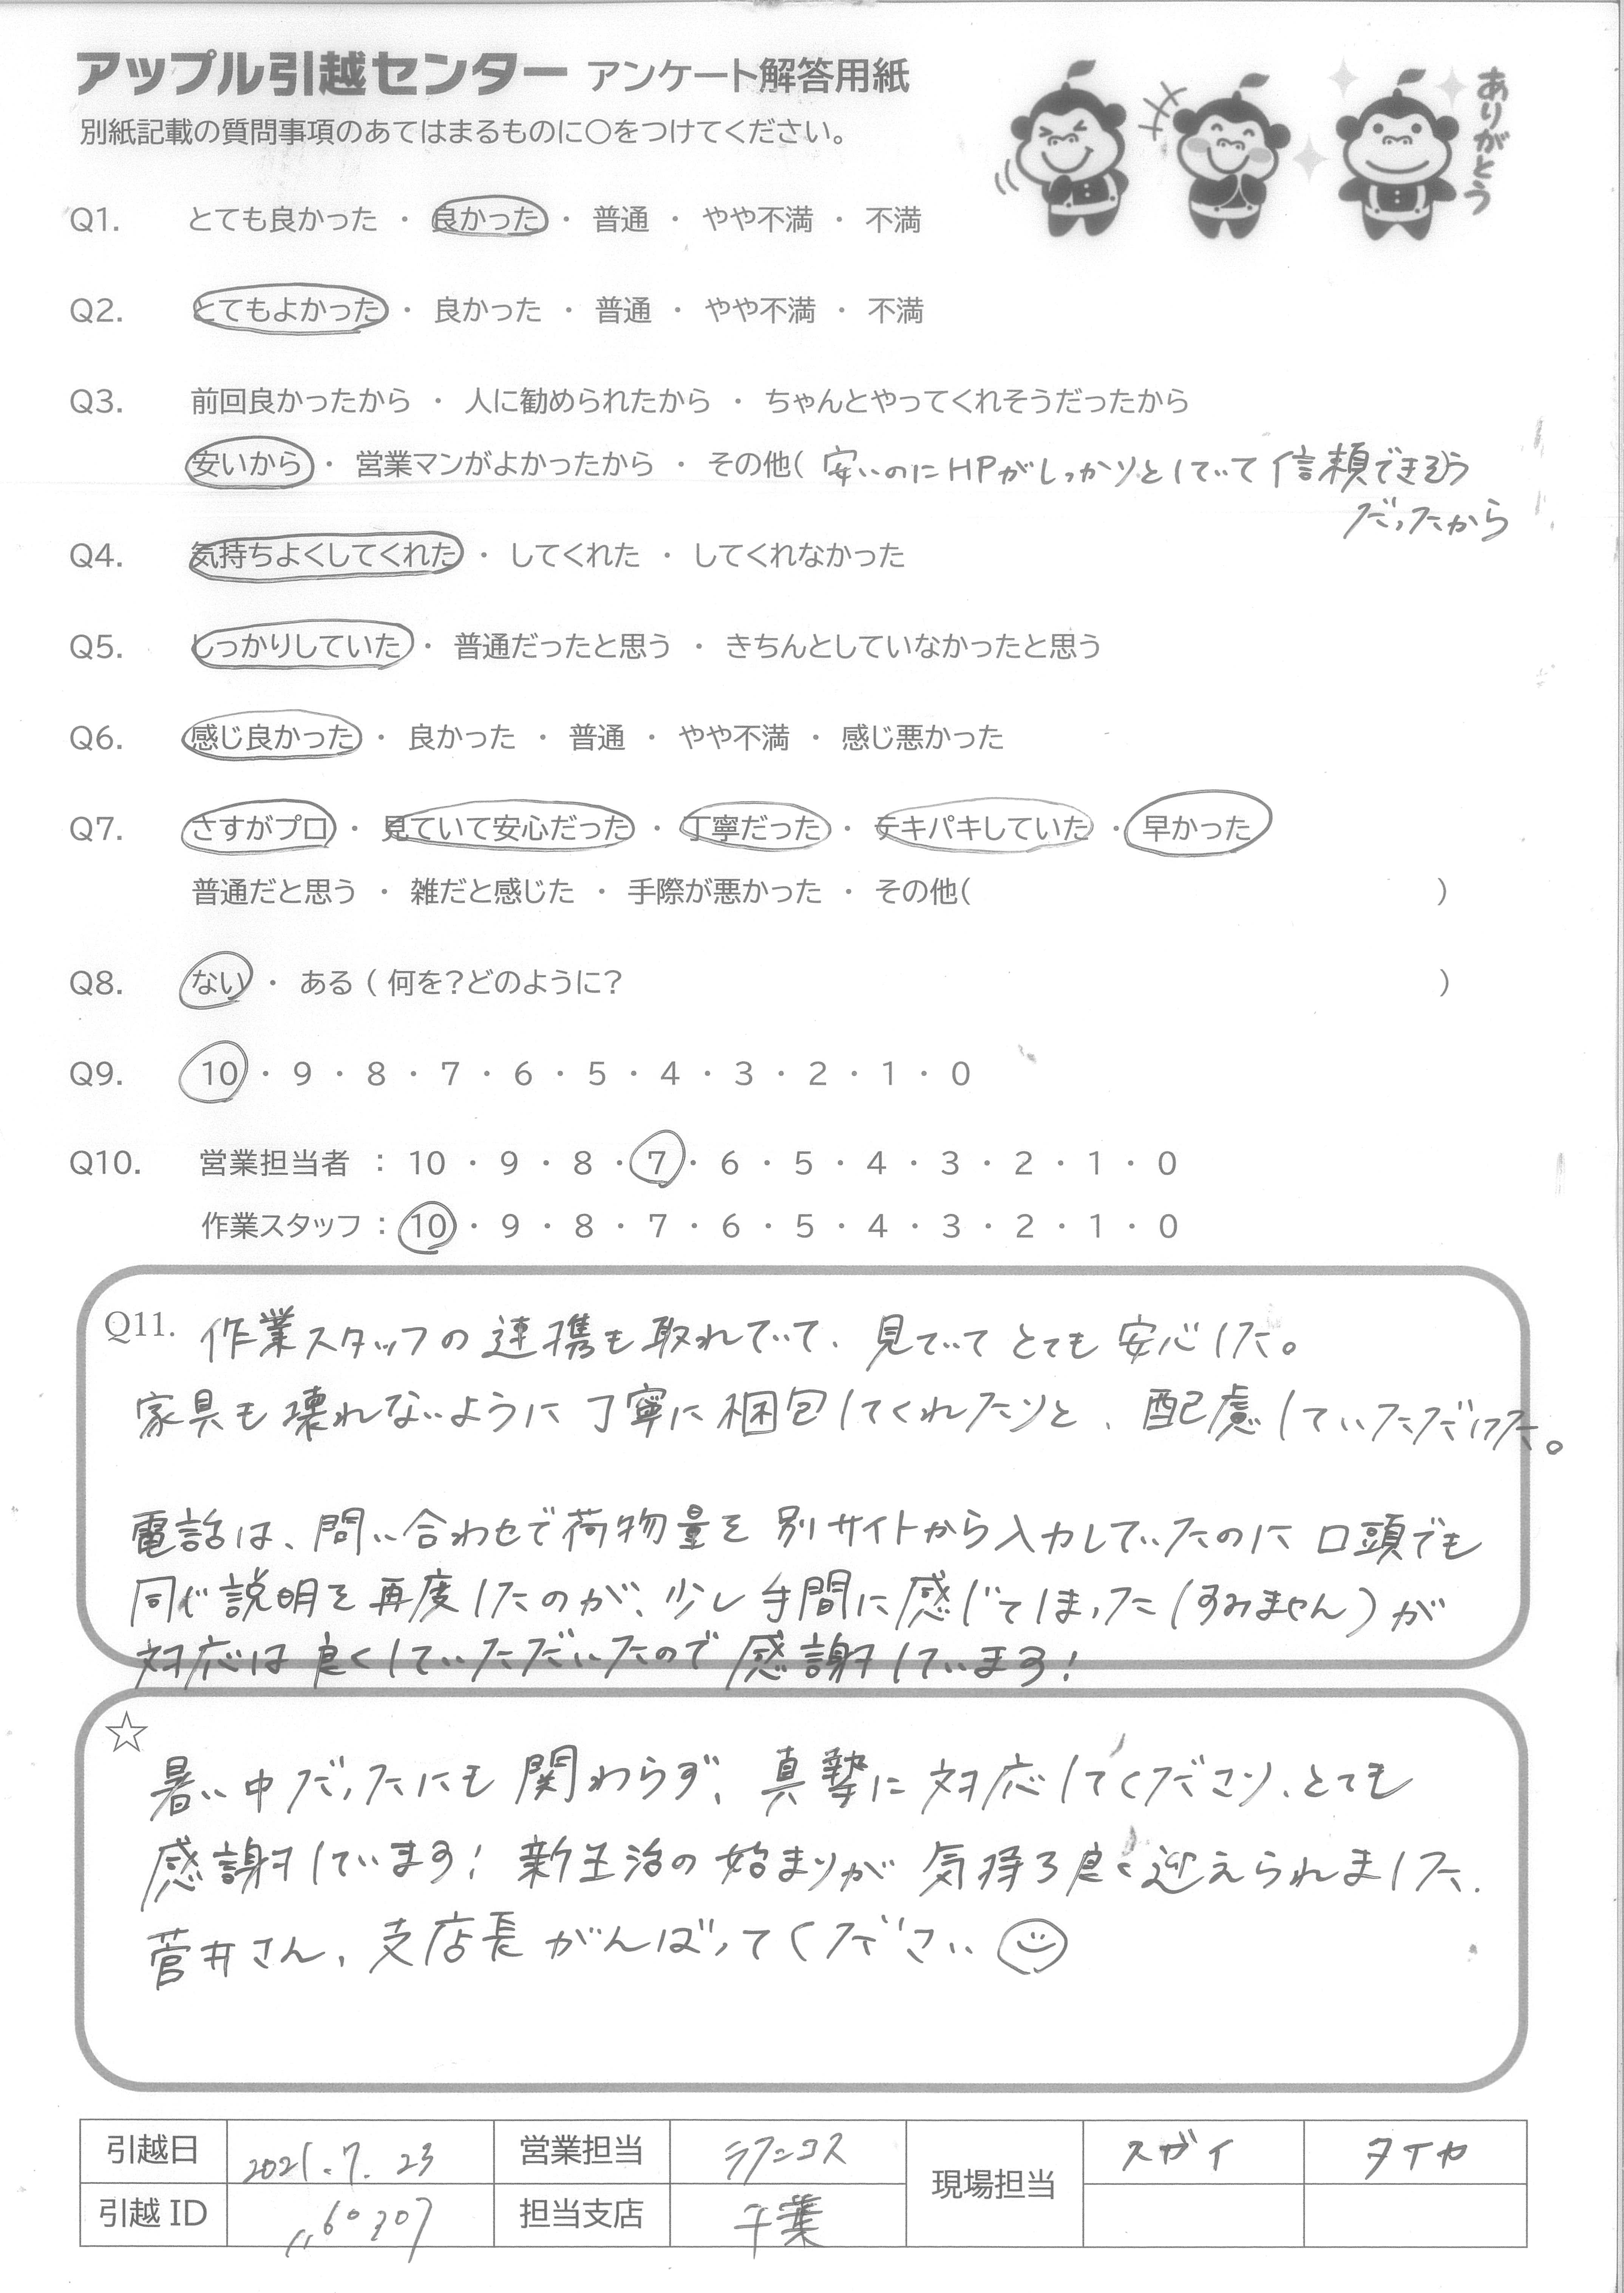 アップル引越センター アンケート解答用紙
別紙記載の質問事項のあてはまるものに○をつけてください。
ありがとう
Q1. とても良かった ・ 良かった ・ 普通 ・ やや不満 ・ 不満
Q2. とてもよかった ・ 良かった ・ 普通 ・ やや不満 ・ 不満
Q3. 前回良かったから ・ 人に勧められたから ・ ちゃんとやってくれそうだったから
安いから ・ 営業マンがよかったから ・ その他( 安いのにHPがしっかりとしていて信頼できそう
だったから
Q4. 気持ちよくしてくれた ・ してくれた ・ してくれなかった
Q5. しっかりしていた ・ 普通だったと思う ・ きちんとしていなかったと思う
Q6. 感じ良かった ・ 良かった ・ 普通 ・ やや不満 ・ 感じ悪かった
Q7. さすがプロ ・ 見ていて安心だった ・ 丁寧だった ・ テキパキしていた ・ 早かった
普通だと思う ・ 雑だと感じた ・ 手際が悪かった ・ その他( )
Q8. ない ・ ある ( 何を?どのように? )
Q9. 10 ・ 9 ・ 8 ・ 7 ・ 6 ・ 5 ・ 4 ・ 3 ・ 2 ・ 1 ・ 0
Q10. 営業担当者 : 10 ・ 9 ・ 8 ・ 7 ・ 6 ・ 5 ・ 4 ・ 3 ・ 2 ・ 1 ・ 0
作業スタッフ : 10 ・ 9 ・ 8 ・ 7 ・ 6 ・ 5 ・ 4 ・ 3 ・ 2 ・ 1 ・ 0
Q11. 作業スタッフの連携も取れていて、見ていてとても安心した。
家具も壊れないように丁寧に梱包してくれたりと、配慮していただけた。
電話は、問い合わせで荷物量を別サイトから入力していたのに口頭でも
同じ説明を再度したのが、少し手間に感じてしまった(すみません)が
対応は良くしていただいたので感謝しています!
☆
暑い中だったにも関わらず、真摯に対応してくださり、とても
感謝しています! 新生活の始まりが気持ち良く迎えられました.
菅井さん、支店長がんばってください
引越日 2021.7.23 営業担当 現場担当 スガイ タイヤ
引越ID 担当支店 千葉